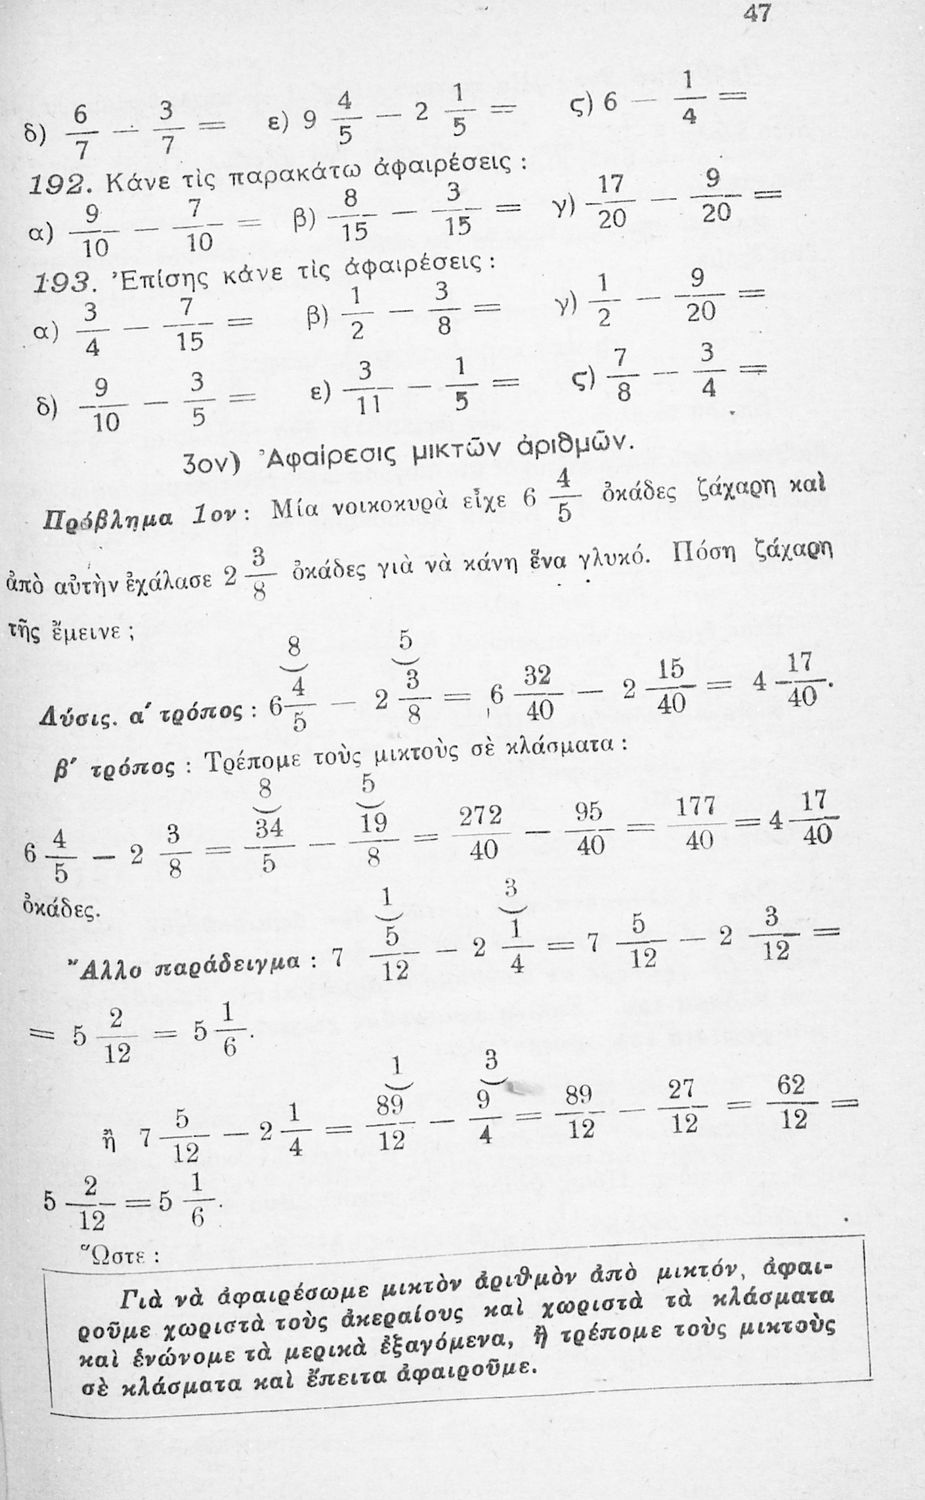 47
δ) 6/7 — 3/7 = ε) 9 4/5 — 2 1/5 = ς) 6 — 1/4 =
192. Κάνε τὶς παρακάτω ἀφαιρέσεις :
α) 9/10 — 7/10 = β) 8/15 — 3/15 = γ) 17/20 — 9/20 =
193. Ἐπίσης κάνε τὶς ἀφαιρέσεις :
α) 3/4 — 7/15 = β) 1/2 — 3/8 = γ) 1/2 — 9/20 =
δ) 9/10 — 3/5 = ε) 3/11 — 1/5 = ς) 7/8 — 3/4 =
3ον) Ἀφαίρεσις μικτῶν ἀριθμῶν.
Πρόβλημα 1ον : Μία νοικοκυρὰ εἶχε 6 4/5 ὀκάδες ζάχαρη καὶ
ἀπὸ αὐτὴν ἐχάλασε 2 3/8 ὀκάδες γιὰ νὰ κάνη ἕνα γλυκό. Πόση ζάχαρη
τῆς ἔμεινε ;
8 5
Λύσις. α′ τρόπος : 6 4/5 — 2 3/8 = 6 32/40 — 2 15/40 = 4 17/40.
β′ τρόπος : Τρέπομε τοὺς μικτοὺς σὲ κλάσματα :
8 5
6 4/5 — 2 3/8 = 34/5 — 19/8 = 272/40 — 95/40 = 177/40 = 4 17/40
ὀκάδες.
1 3
Ἄλλο παράδειγμα : 7 5/12 — 2 1/4 = 7 5/12 — 2 3/12 =
= 5 2/12 = 5 1/6.
1 3
ἢ 7 5/12 — 2 1/4 = 89/12 — 9/4 = 89/12 — 27/12 = 62/12 =
5 2/12 = 5 1/6.
Ὥστε :
Γιὰ νὰ ἀφαιρέσωμε μικτὸν ἀριθμὸν ἀπὸ μικτόν, ἀφαι-
ροῦμε χωριστὰ τοὺς ἀκεραίους καὶ χωριστὰ τὰ κλάσματα
καὶ ἑνώνομε τὰ μερικὰ ἐξαγόμενα, ἢ τρέπομε τοὺς μικτοὺς
σὲ κλάσματα καὶ ἔπειτα ἀφαιροῦμε.